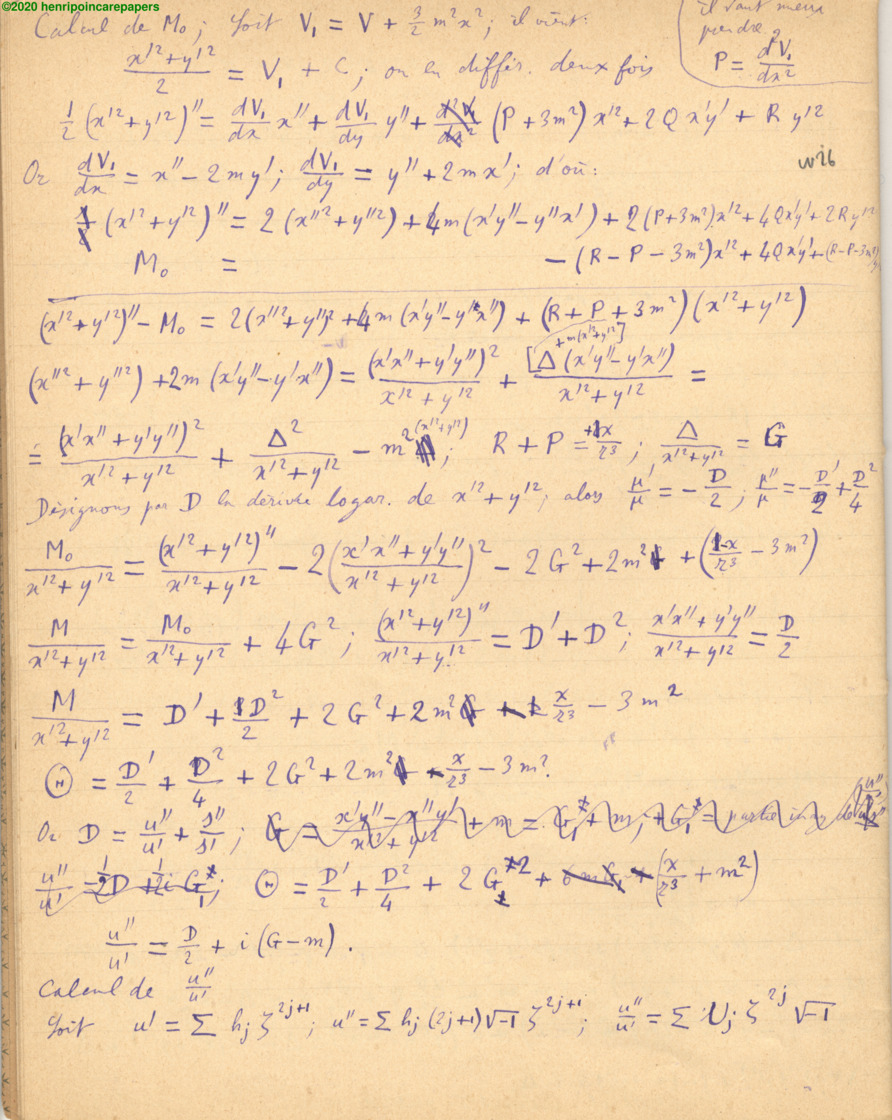 ©2020 henripoincarepapers
il vaut mieux
prendre
P = d²V₁/dx²
Calcul de M₀; Soit V₁ = V + 3/2 m²x²; il vient:
(x'²+y'²)/2 = V₁ + C; ou en différ. deux fois
1/2 (x'²+y'²)'' = dV₁/dx x'' + dV₁/dy y'' + (P+3m²) x'² + 2Q x'y' + R y'²
Or dV₁/dx = x'' - 2my'; dV₁/dy = y'' + 2mx'; d'où:
(x'²+y'²)'' = 2(x''²+y''²) + 4m(x'y''-y''x') + 2(P+3m²)x'² + 4Qx'y' + 2Ry'²
M₀ = - (R-P-3m²)x'² + 4Qx'y' + (R-P-3m²)
(x'²+y'²)'' - M₀ = 2(x''²+y''²) + 4m(x'y''-y'x'') + (R+P+3m²)(x'²+y'²)
(x''²+y''²) + 2m(x'y''-y'x'') = (x'x''+y'y'')²/(x'²+y'²) + [Δ + m(x'²+y'²)](x'y''-y'x'')/(x'²+y'²) =
= (x'x''+y'y'')²/(x'²+y'²) + Δ²/(x'²+y'²) - m²(x'²+y'²); R+P = x/r³; Δ/(x'²+y'²) = G
Désignons par D la dérivée logar. de x'²+y'²; alors μ'/μ = -D/2; μ''/μ = -D'/2 + D²/4
M₀/(x'²+y'²) = (x'²+y'²)''/(x'²+y'²) - 2((x'x''+y'y'')/(x'²+y'²))² - 2G² + 2m² + (x/r³ - 3m²)
M/(x'²+y'²) = M₀/(x'²+y'²) + 4G²; (x'²+y'²)''/(x'²+y'²) = D' + D²; (x'x''+y'y'')/(x'²+y'²) = D/2
M/(x'²+y'²) = D' + D²/2 + 2G² + 2m² x/r³ - 3m²
Θ = D'/2 + D²/4 + 2G² + 2m² + x/r³ - 3m².
Or D = u''/u' + s''/s'; G = (x'y''-x''y')/(x'²+y'²) + m = G₁ + m; G₁ = partie imag de u''/u'
u''/u' = 1/2 D + 1/2 i G₁; Θ = D'/2 + D²/4 + 2G² + (x/r³ + m²)
u''/u' = D/2 + i(G-m).
Calcul de u''/u'
Soit u' = Σ hⱼ ζ²ʲ⁺¹; u'' = Σ hⱼ (2j+1)√-1 ζ²ʲ⁺¹; u''/u' = Σ Uⱼ ζ²ʲ √-1